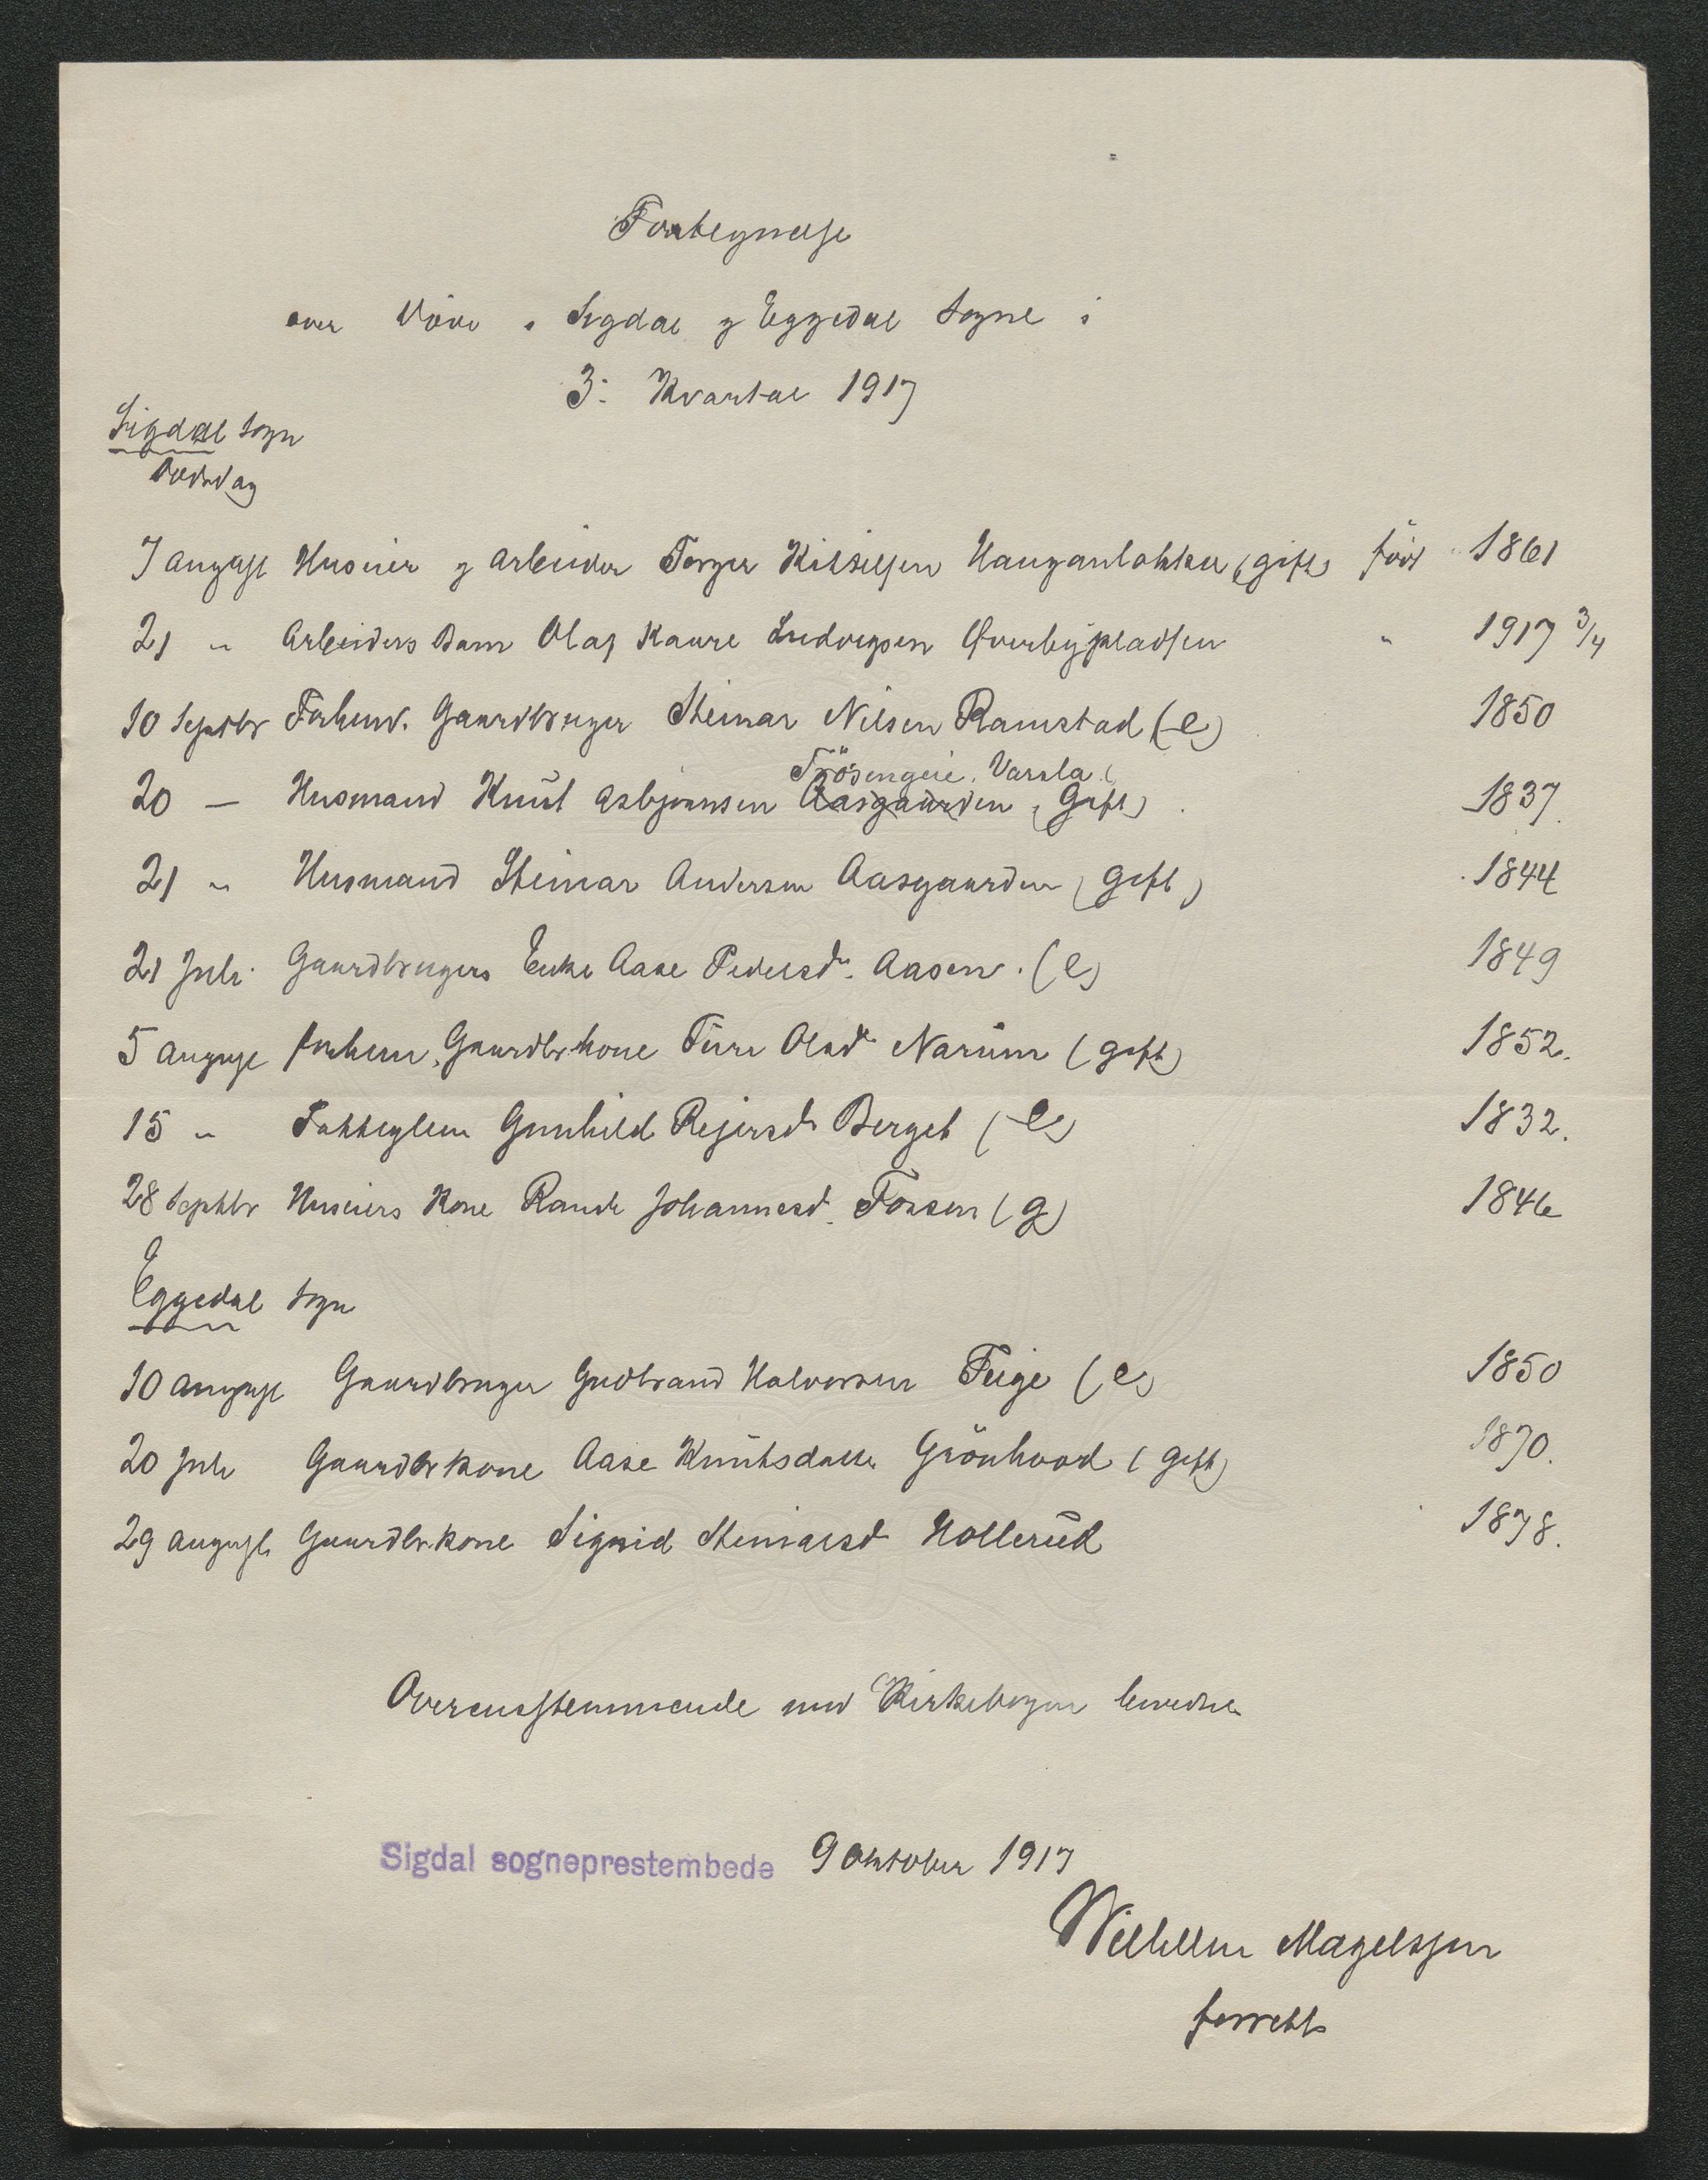 Fortegnelse
over Døde i Sigdal og Eggedal Sogne i
3: Kvartal 1917
Sigdal Sogn
Dødsdag
7 august Huseier og Arbeider Torger Kittilsen Hauganløkka (gift) født 1861
21 " Arbeiders Barn Olaf Kaare Ludvigsen Øverbypladsen " 1917 3/4
10 Septbr Forhenv. Gaardbruger Steinar Nilsen Ramstad (e) 1850
Frøsengeie, Varsla
20 — Husmand Knut Asbjørnsen Aasgaarden (Gift) 1837.
21 " Husmand Steinar Andersen Aasgaarden (gift) 1844
21 Juli Gaardbrugers Enke Aase Pedersd. Aasen. (e) 1849
5 august forhenv. Gaardbr.kone Turi Olsd. Narum (gift) 1852.
15 " Fattiglem Gunhild Rejersd. Berget (e) 1832.
28 Septbr Huseiers Kone Randi Johannesd. Fossen (g) 1846
Eggedal Sogn
10 august Gaardbruger Gudbrand Halvorsen Teige (e) 1850
20 Juli Gaardbrkone Aase Knutsdatter Grønhovd (gift) 1870.
29 august Gaardbr.kone Sigrid Steinarsd. Hollerud 1878.
Overensstemmende med Kirkebogen bevidnes
Sigdal sogneprestembede 9 Oktober 1917
Wilhelm Magelssen
forrett.